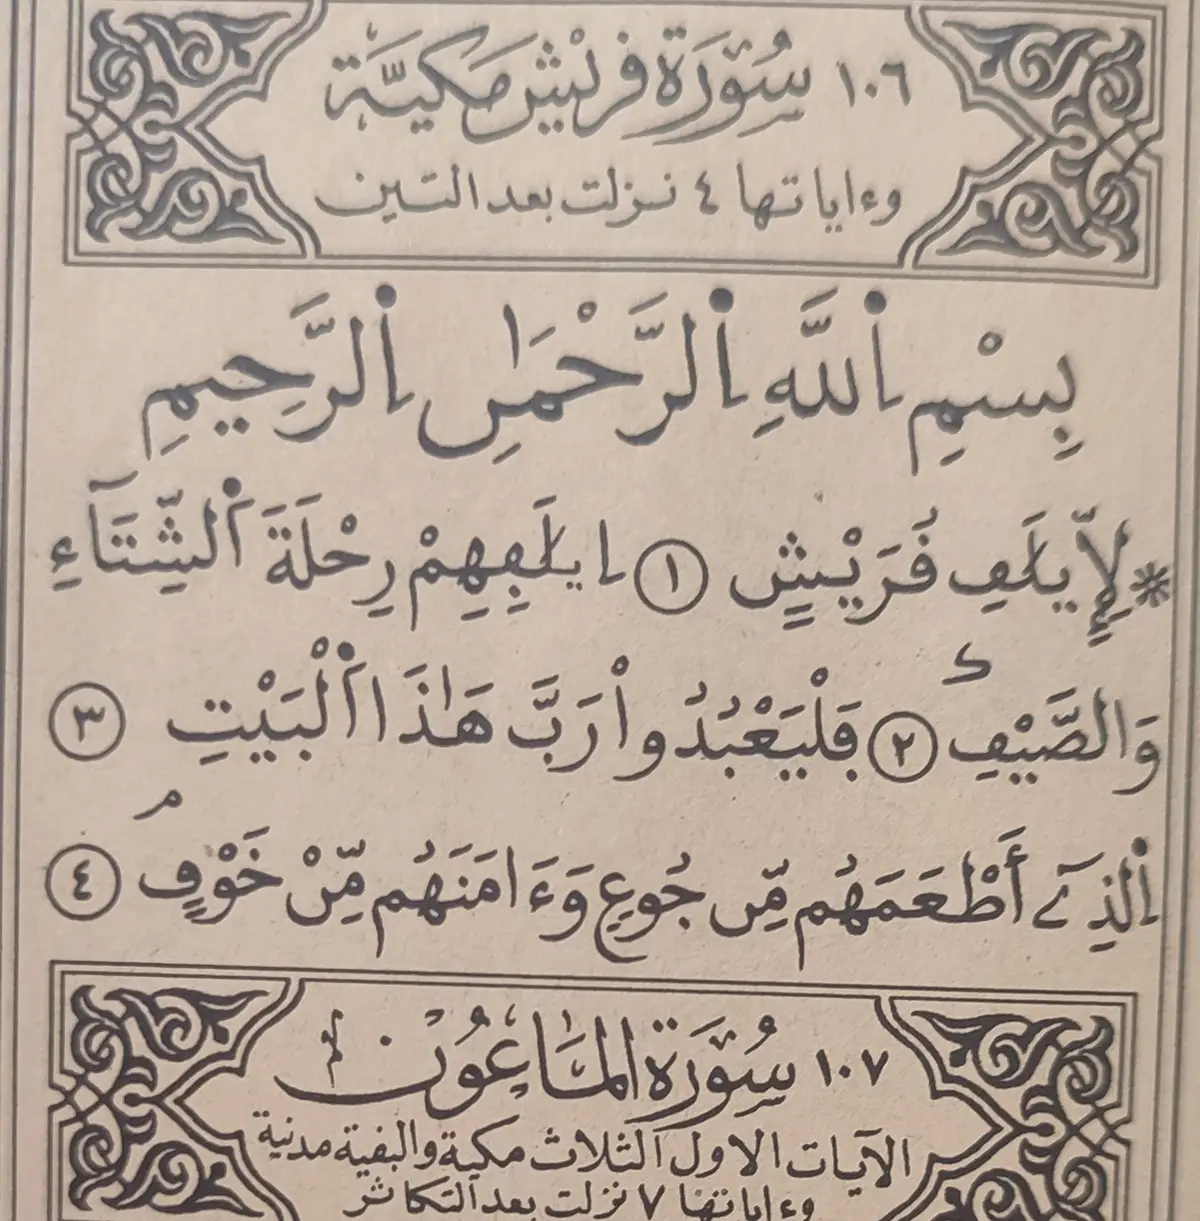 ١٠٦ سُورَة قُرَيْش مَكِّيَّة
وءاياتها ٤ نزلت بعد التين
بِسْمِ اِ۬للَّهِ اِ۬لرَّحْمَٰنِ اِ۬لرَّحِيمِ
* لِإِيلَٰفِ قُرَيْشٍ ١ اِيلَٰفِهِمْ رِحْلَةَ اَ۬لشِّتَآءِ
وَالصَّيْفِ ٢ فَلْيَعْبُدُواْ رَبَّ هَٰذَا اَ۬لْبَيْتِ ٣
اِ۬لذِےٓ أَطْعَمَهُم مِّن جُوعٍ وَءَامَنَهُم مِّنْ خَوْفٍ ٤
١٠٧ سُورَة المَاعُون
الآيات الاول الثلاث مكية والبقية مدنية
وءاياتها ٧ نزلت بعد التكاثر